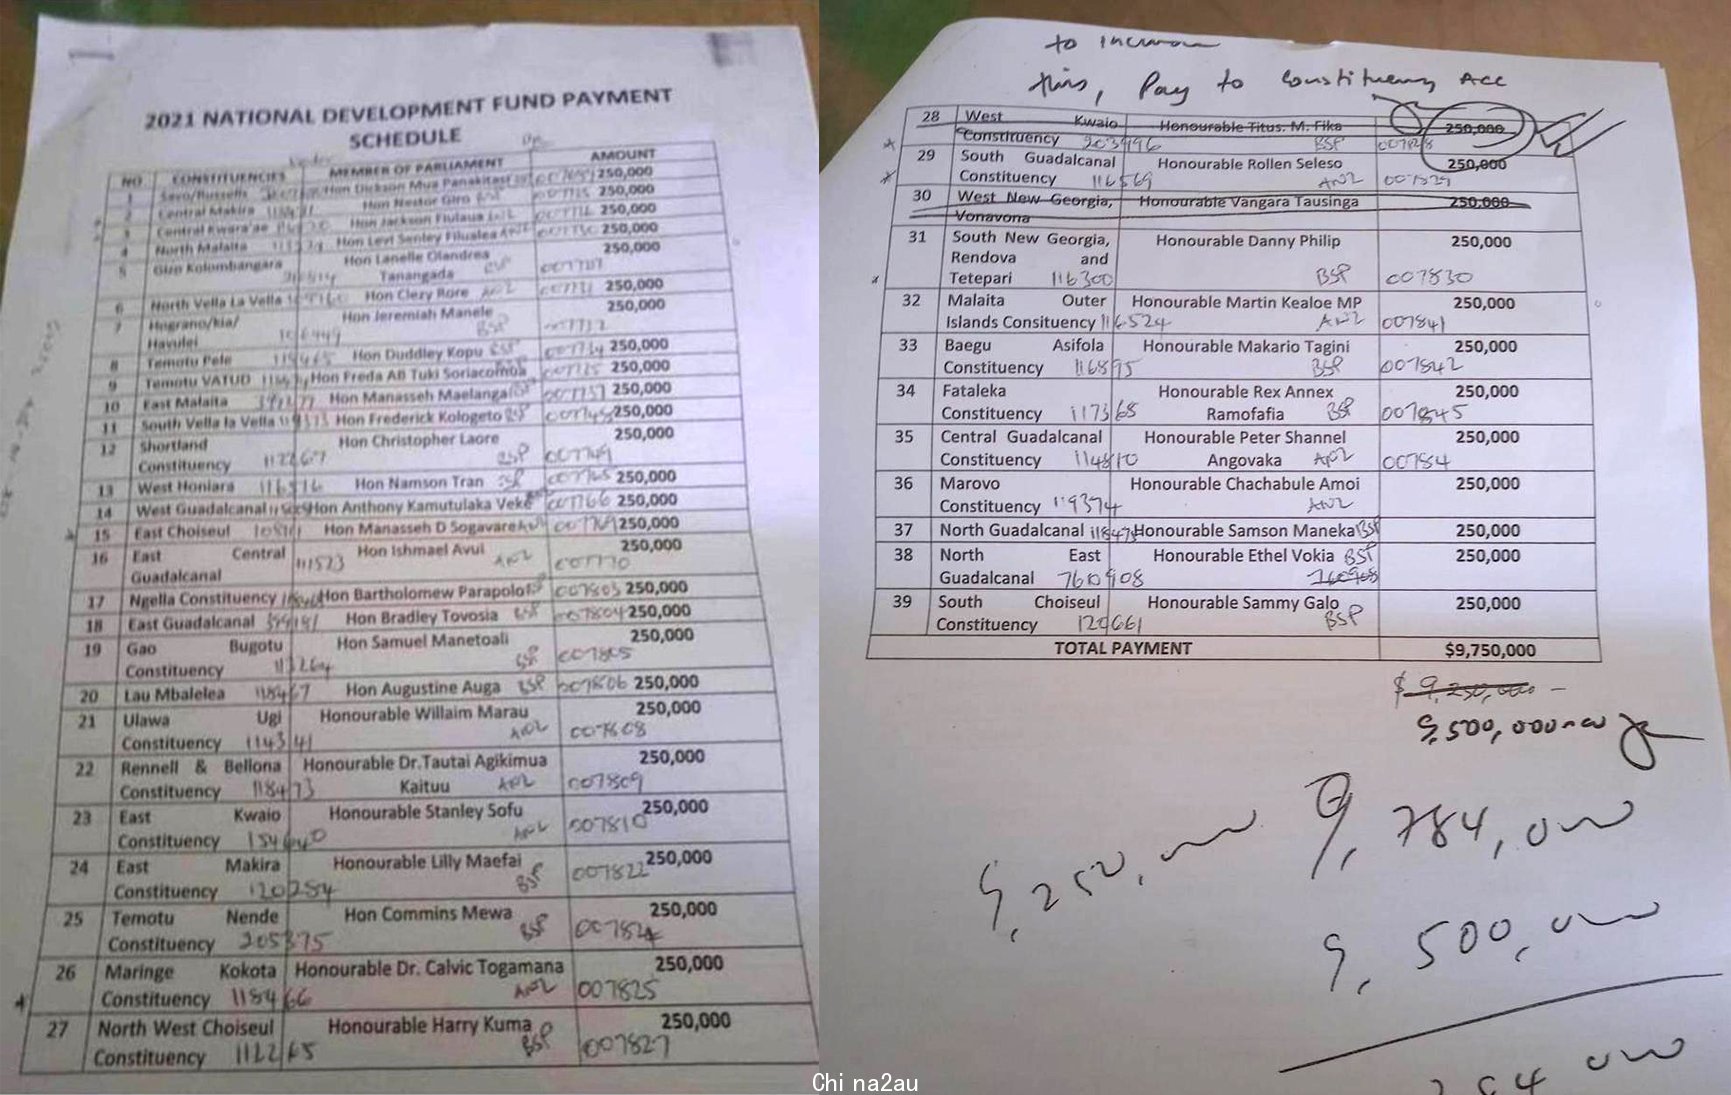 2021 NATIONAL DEVELOPMENT FUND PAYMENT
SCHEDULE
NO CONSTITUENCIES MEMBER OF PARLIAMENT AMOUNT
1 Savo/Russells Hon Dickson Mua Panakitasi 250,000
2 Central Makira Hon Nestor Giro 250,000
3 Central Kwara'ae Hon Jackson Fiulaua 250,000
4 North Malaita Hon Levi Senley Filualea ANZ 250,000
5 Gizo Kolombangara Hon Lanelle Olandrea 250,000
Tanangada BSP 007727
6 North Vella La Vella Hon Clezy Rore ANZ 007731 250,000
7 Hograno/kia/ Hon Jeremiah Manele 250,000
Havulei BSP
8 Temotu Pele Hon Duddley Kopu BSP 250,000
9 Temotu VATUD Hon Freda AB Tuki Soriacomua 250,000
10 East Malaita Hon Manasseh Maelanga 250,000
11 South Vella la Vella Hon Frederick Kologeto BSP 250,000
12 Shortland Hon Christopher Laore 250,000
Constituency 112267 BSP 007749
13 West Honiara 116516 Hon Namson Tran BSP 007765 250,000
14 West Guadalcanal Hon Anthony Kamutulaka Veke 007766 250,000
15 East Choiseul Hon Manasseh D Sogavare 007769 250,000
16 East Central Hon Ishmael Avui 250,000
Guadalcanal 111523 ANZ 007770
17 Ngella Constituency Hon Bartholomew Parapolo 007803 250,000
18 East Guadalcanal Hon Bradley Tovosia BSP 007804 250,000
19 Gao Bugotu Hon Samuel Manetoali 250,000
Constituency 113264 BSP 007805
20 Lau Mbalelea 118467 Hon Augustine Auga BSP 007806 250,000
21 Ulawa Ugi Honourable Willaim Marau 250,000
Constituency 114341 ANZ 007808
22 Rennell & Bellona Honourable Dr.Tautai Agikimua 250,000
Constituency 118473 Kaituu ANZ 007809
23 East Kwaio Honourable Stanley Sofu 250,000
Constituency 154640 ANZ 007810
24 East Makira Honourable Lilly Maefai 250,000
Constituency 120284 BSP 007822
25 Temotu Nende Hon Commins Mewa 250,000
Constituency 205375 BSP 007824
26 Maringe Kokota Honourable Dr. Calvic Togamana 250,000
Constituency 118466 ANZ 007825
27 North West Choiseul Honourable Harry Kuma 250,000
Constituency 112265 BSP 007827
to increase
this, Pay to Constituency Acc
28 West Kwaio Honourable Titus. M. Fika 250,000
Constituency 203996 BSP 007828
29 South Guadalcanal Honourable Rollen Seleso 250,000
Constituency 116569 ANZ 007829
30 West New Georgia, Honourable Vangara Tausinga 250,000
Vonavona
31 South New Georgia, Honourable Danny Philip 250,000
Rendova and
Tetepari 116300 BSP 007830
32 Malaita Outer Honourable Martin Kealoe MP 250,000
Islands Consituency 116524 ANZ 007841
33 Baegu Asifola Honourable Makario Tagini 250,000
Constituency 116895 BSP 007842
34 Fataleka Honourable Rex Annex 250,000
Constituency 117368 Ramofafia BSP 007845
35 Central Guadalcanal Honourable Peter Shannel 250,000
Constituency 114810 Angovaka ANZ 00784
36 Marovo Honourable Chachabule Amoi 250,000
Constituency 119374 ANZ
37 North Guadalcanal 118478 Honourable Samson Maneka BSP 250,000
38 North East Honourable Ethel Vokia BSP 250,000
Guadalcanal 760908 760908
39 South Choiseul Honourable Sammy Galo 250,000
Constituency 120661 BSP
TOTAL PAYMENT $9,750,000
$ 9,250,000 -
9,500,000-00
9,784,000
9,250,000
9,500,000
284 000
Chi na2au